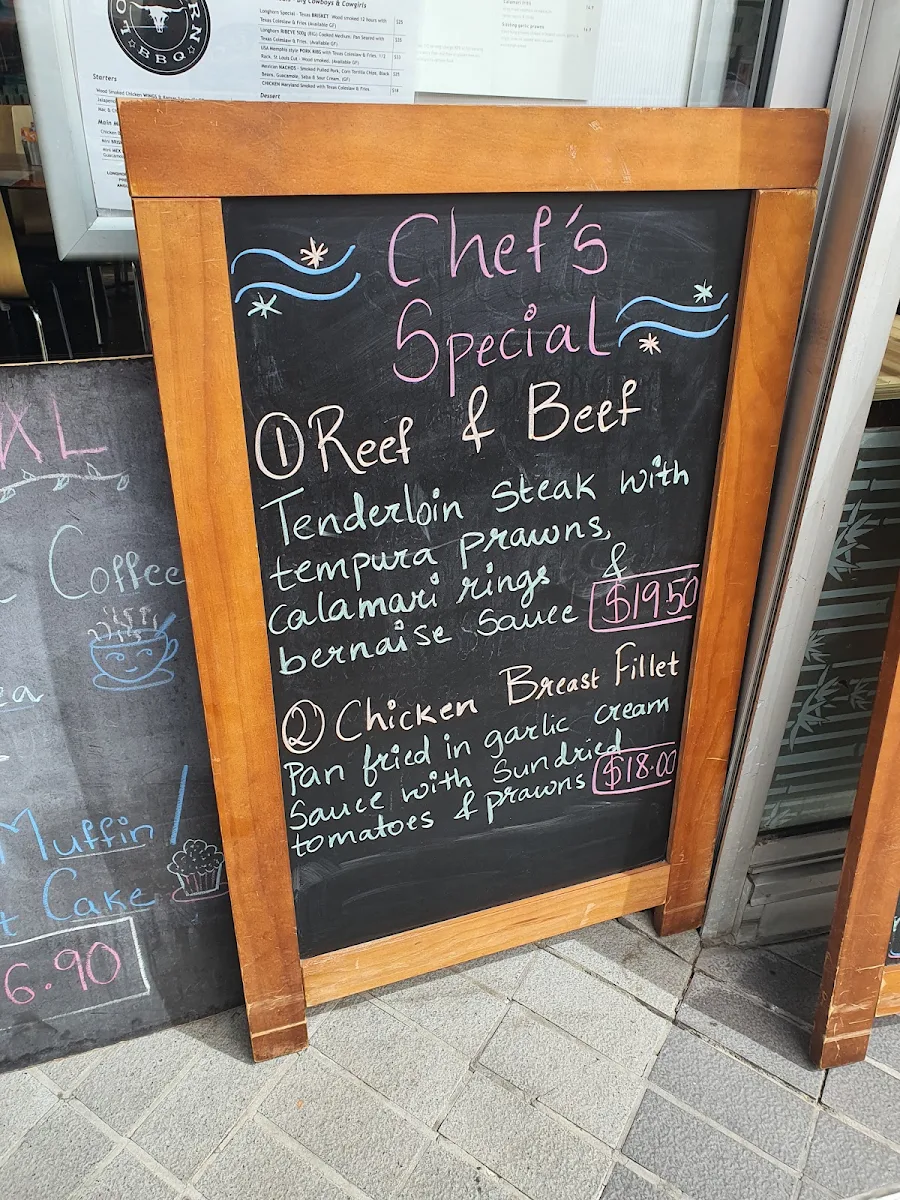 Big Cowboys & Cowgirls
Longhorn Special - Texas BRISKET Wood smoked 12 hours with
Texas Coleslaw & Fries (Available GF)
Longhorn RIBEYE 500g (BIG) Cooked Medium, Pan Seared with
Texas Coleslaw & Fries. (Available GF)
USA Memphis style PORK RIBS with Texas Coleslaw & Fries. 1/2
Rack, St Louis Cut - Wood smoked. (Available GF)
Mexican NACHOS - Smoked Pulled Pork, Corn Tortilla Chips, Black
Beans, Guacamole, Salsa & Sour Cream. (GF)
CHICKEN Maryland Smoked with Texas Coleslaw & Fries.
Dessert
BBQ
Starters
Wood Smoked Chicken WINGS
Main M
Chef's
Special
① Reef & Beef
Tenderloin Steak with
tempura prawns,
calamari rings &
bernaise Sauce $19.50
② Chicken Breast Fillet
Pan fried in garlic cream
Sauce with Sundried
tomatoes & prawns $18.00
XL
Coffee
Muffin /
Cake
6.90